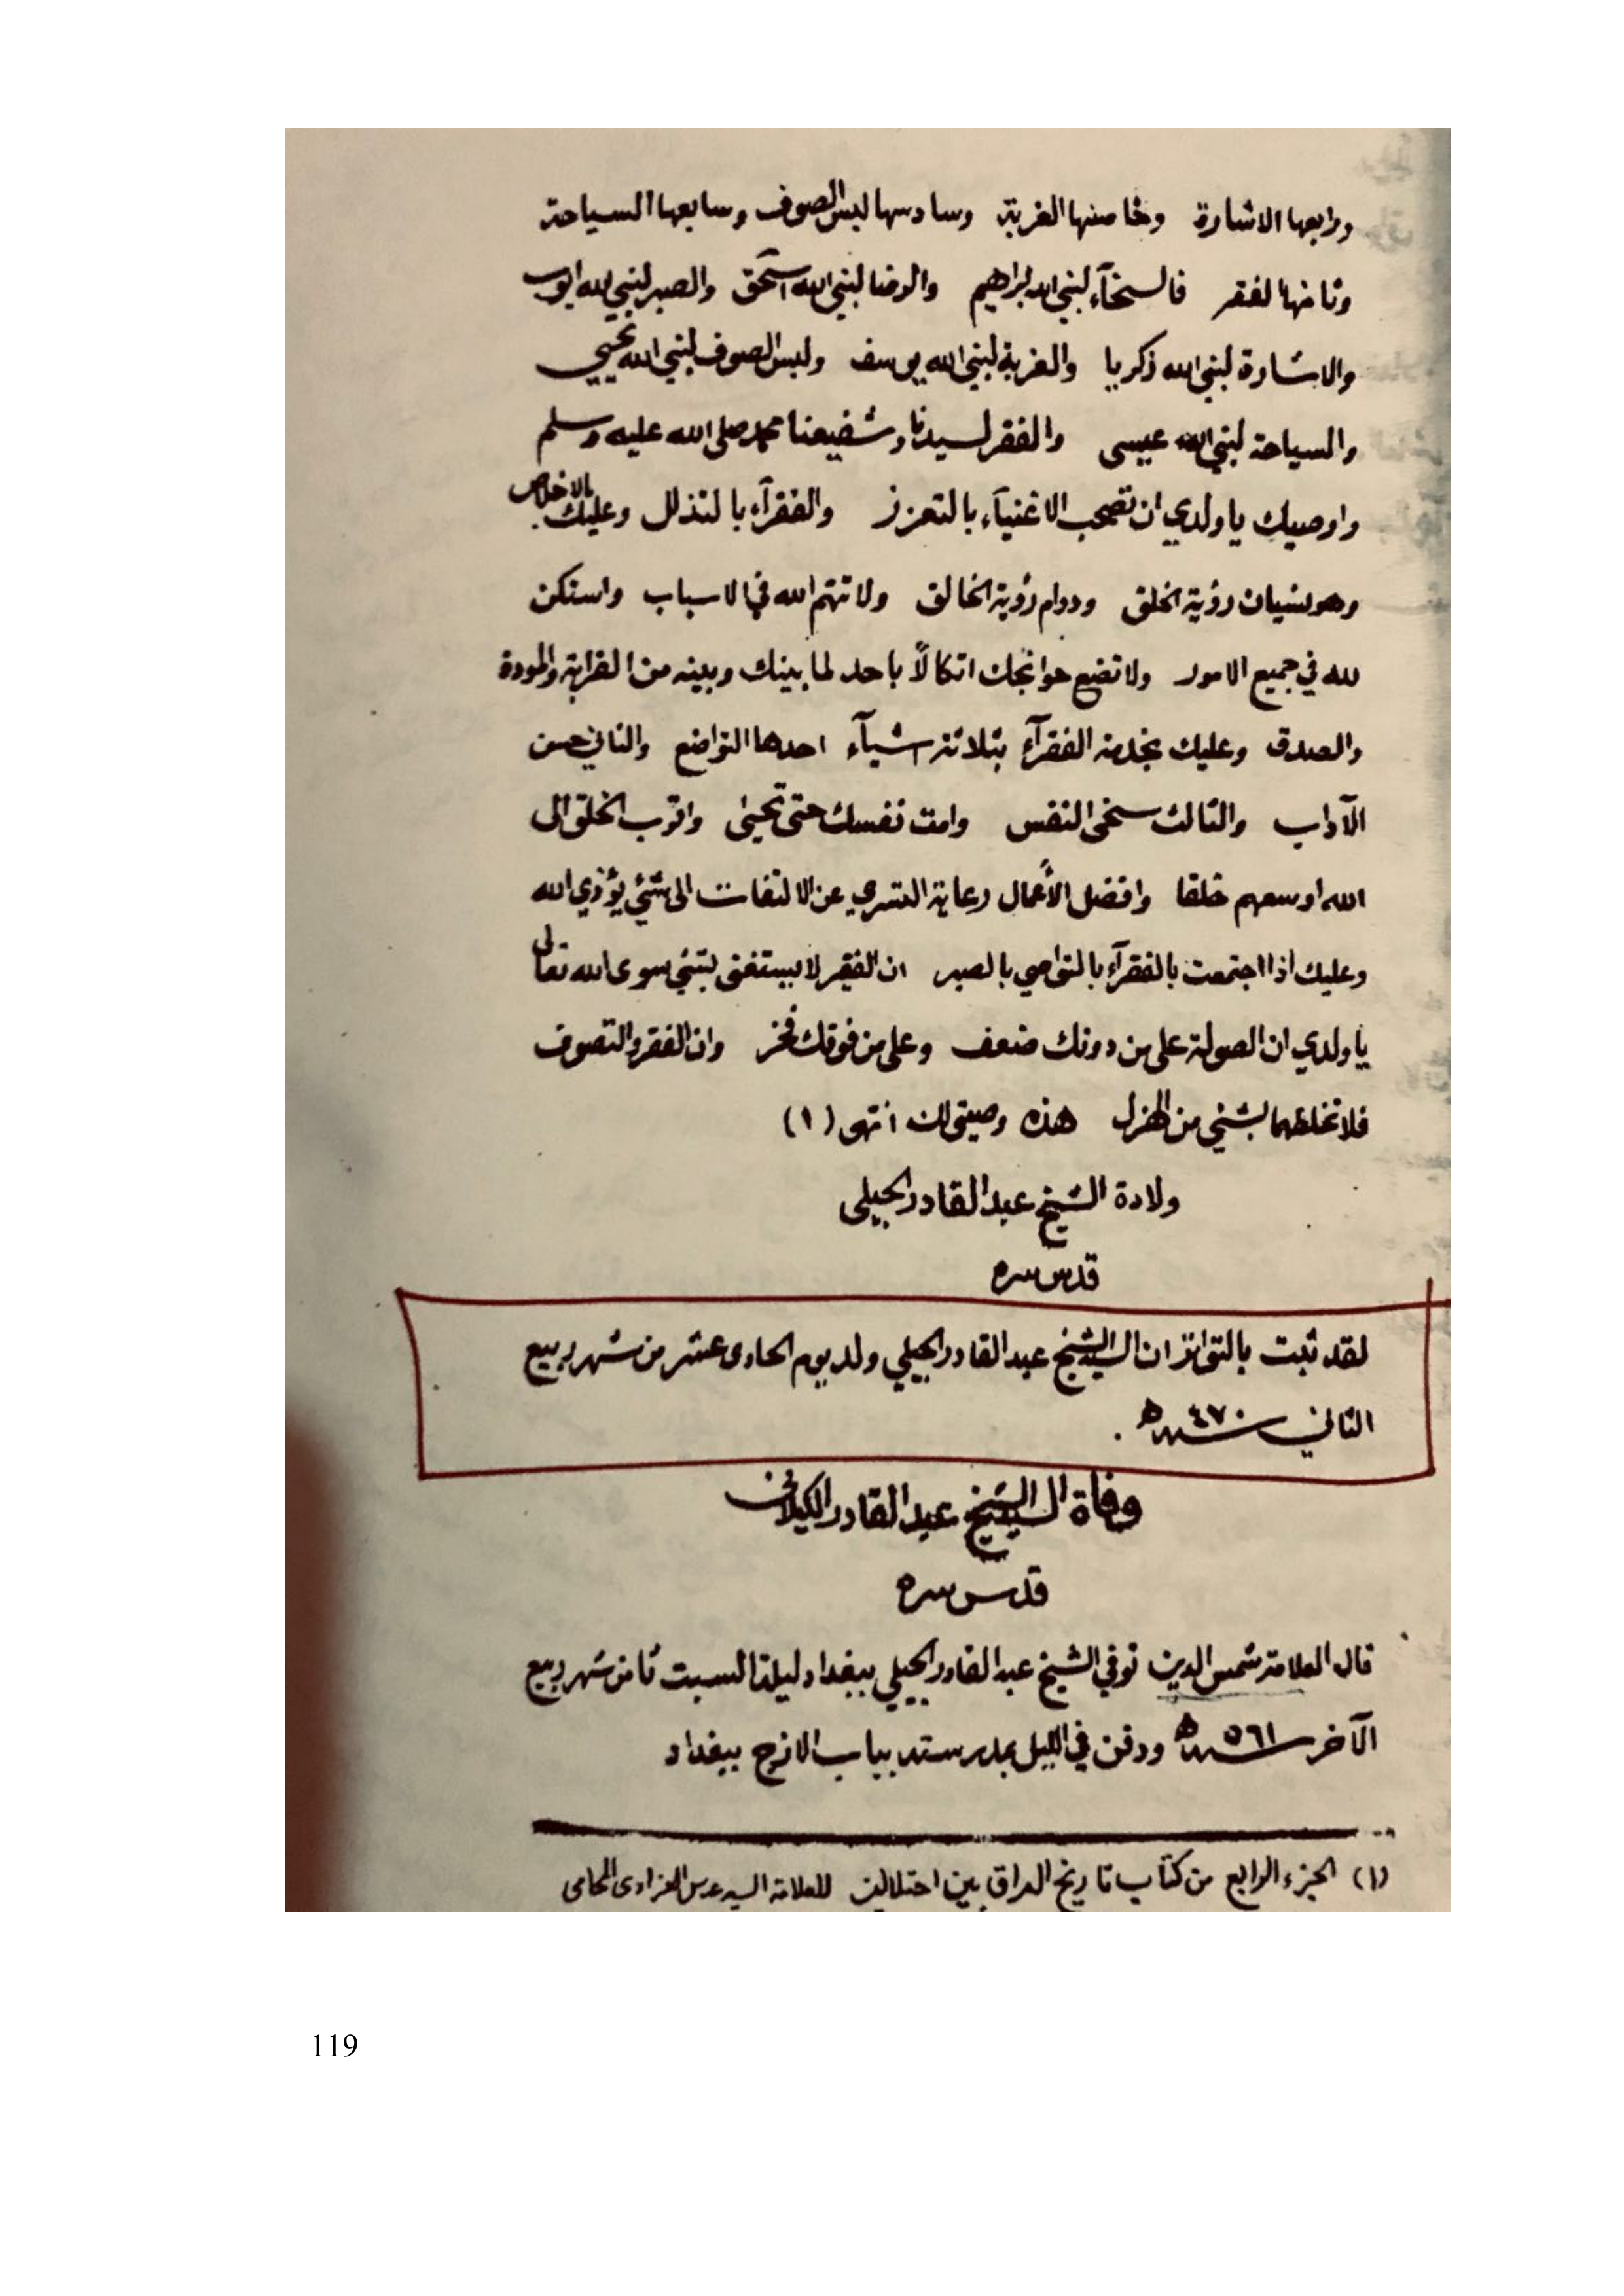 ورابعها الاشارة وخامسها الغربة وسادسها لبس الصوف وسابعها السياحة
وثامنها الفقر فالسخآء لنبي الله ابراهيم والرضا لنبي الله اسحق والصبر لنبي الله ايوب
والاشارة لنبي الله زكريا والغربة لنبي الله يوسف ولبس الصوف لنبي الله يحيى
والسياحة لنبي الله عيسى والفقر لسيدنا وشفيعنا محمد صلى الله عليه وسلم
واوصيك يا ولدي ان تصحب الاغنيآء بالتعزز والفقرآء بالتذلل وعليك بالاخلاص
وهو نسيان رؤية الخلق ودوام رؤية الخالق ولا تتهم الله في الاسباب واستكن
لله في جميع الامور ولا تضع حوائجك اتكالاً باحد لما بينك وبينه من القرابة والمودة
والصدق وعليك بخدمة الفقرآء بثلاثة اشيآء احدها التواضع والثاني حسن
الآداب والثالث سخى النفس وامت نفسك حتى تحيى واقرب الخلق الى
الله اوسعهم خلقا وافضل الأعمال رعاية السري عن الالتفات الى شئ يؤذي الله
وعليك اذا اجتمعت بالفقرآء بالتواصي بالصبر ان الفقير لا يستغنى بشئ سوى الله تعالى
يا ولدي ان الصولة على من دونك ضعف وعلى من فوقك فخر وان الفقر والتصوف
فلا تخلطهما بشئ من الهزل هذه وصيتي لك انتهى (١)
ولادة الشيخ عبد القادر الجيلى
قدس سره
لقد ثبت بالتواتر ان السيد الشيخ عبد القادر الجيلي ولد يوم الحادى عشر من شهر ربيع
الثاني سنة ٤٧٠ هـ .
وفاة السيد الشيخ عبد القادر الكيلاني
قدس سره
قال العلامة شمس الدين توفي الشيخ عبد القادر الجيلي ببغداد ليلة السبت ثامن شهر ربيع
الآخر سنة ٥٦١ هـ ودفن في الليل بمدرسته بباب الازج ببغداد
(١) الجزء الرابع من كتاب تاريخ العراق بين احتلالين للعلامة السيد عباس العزاوى المحامى
119